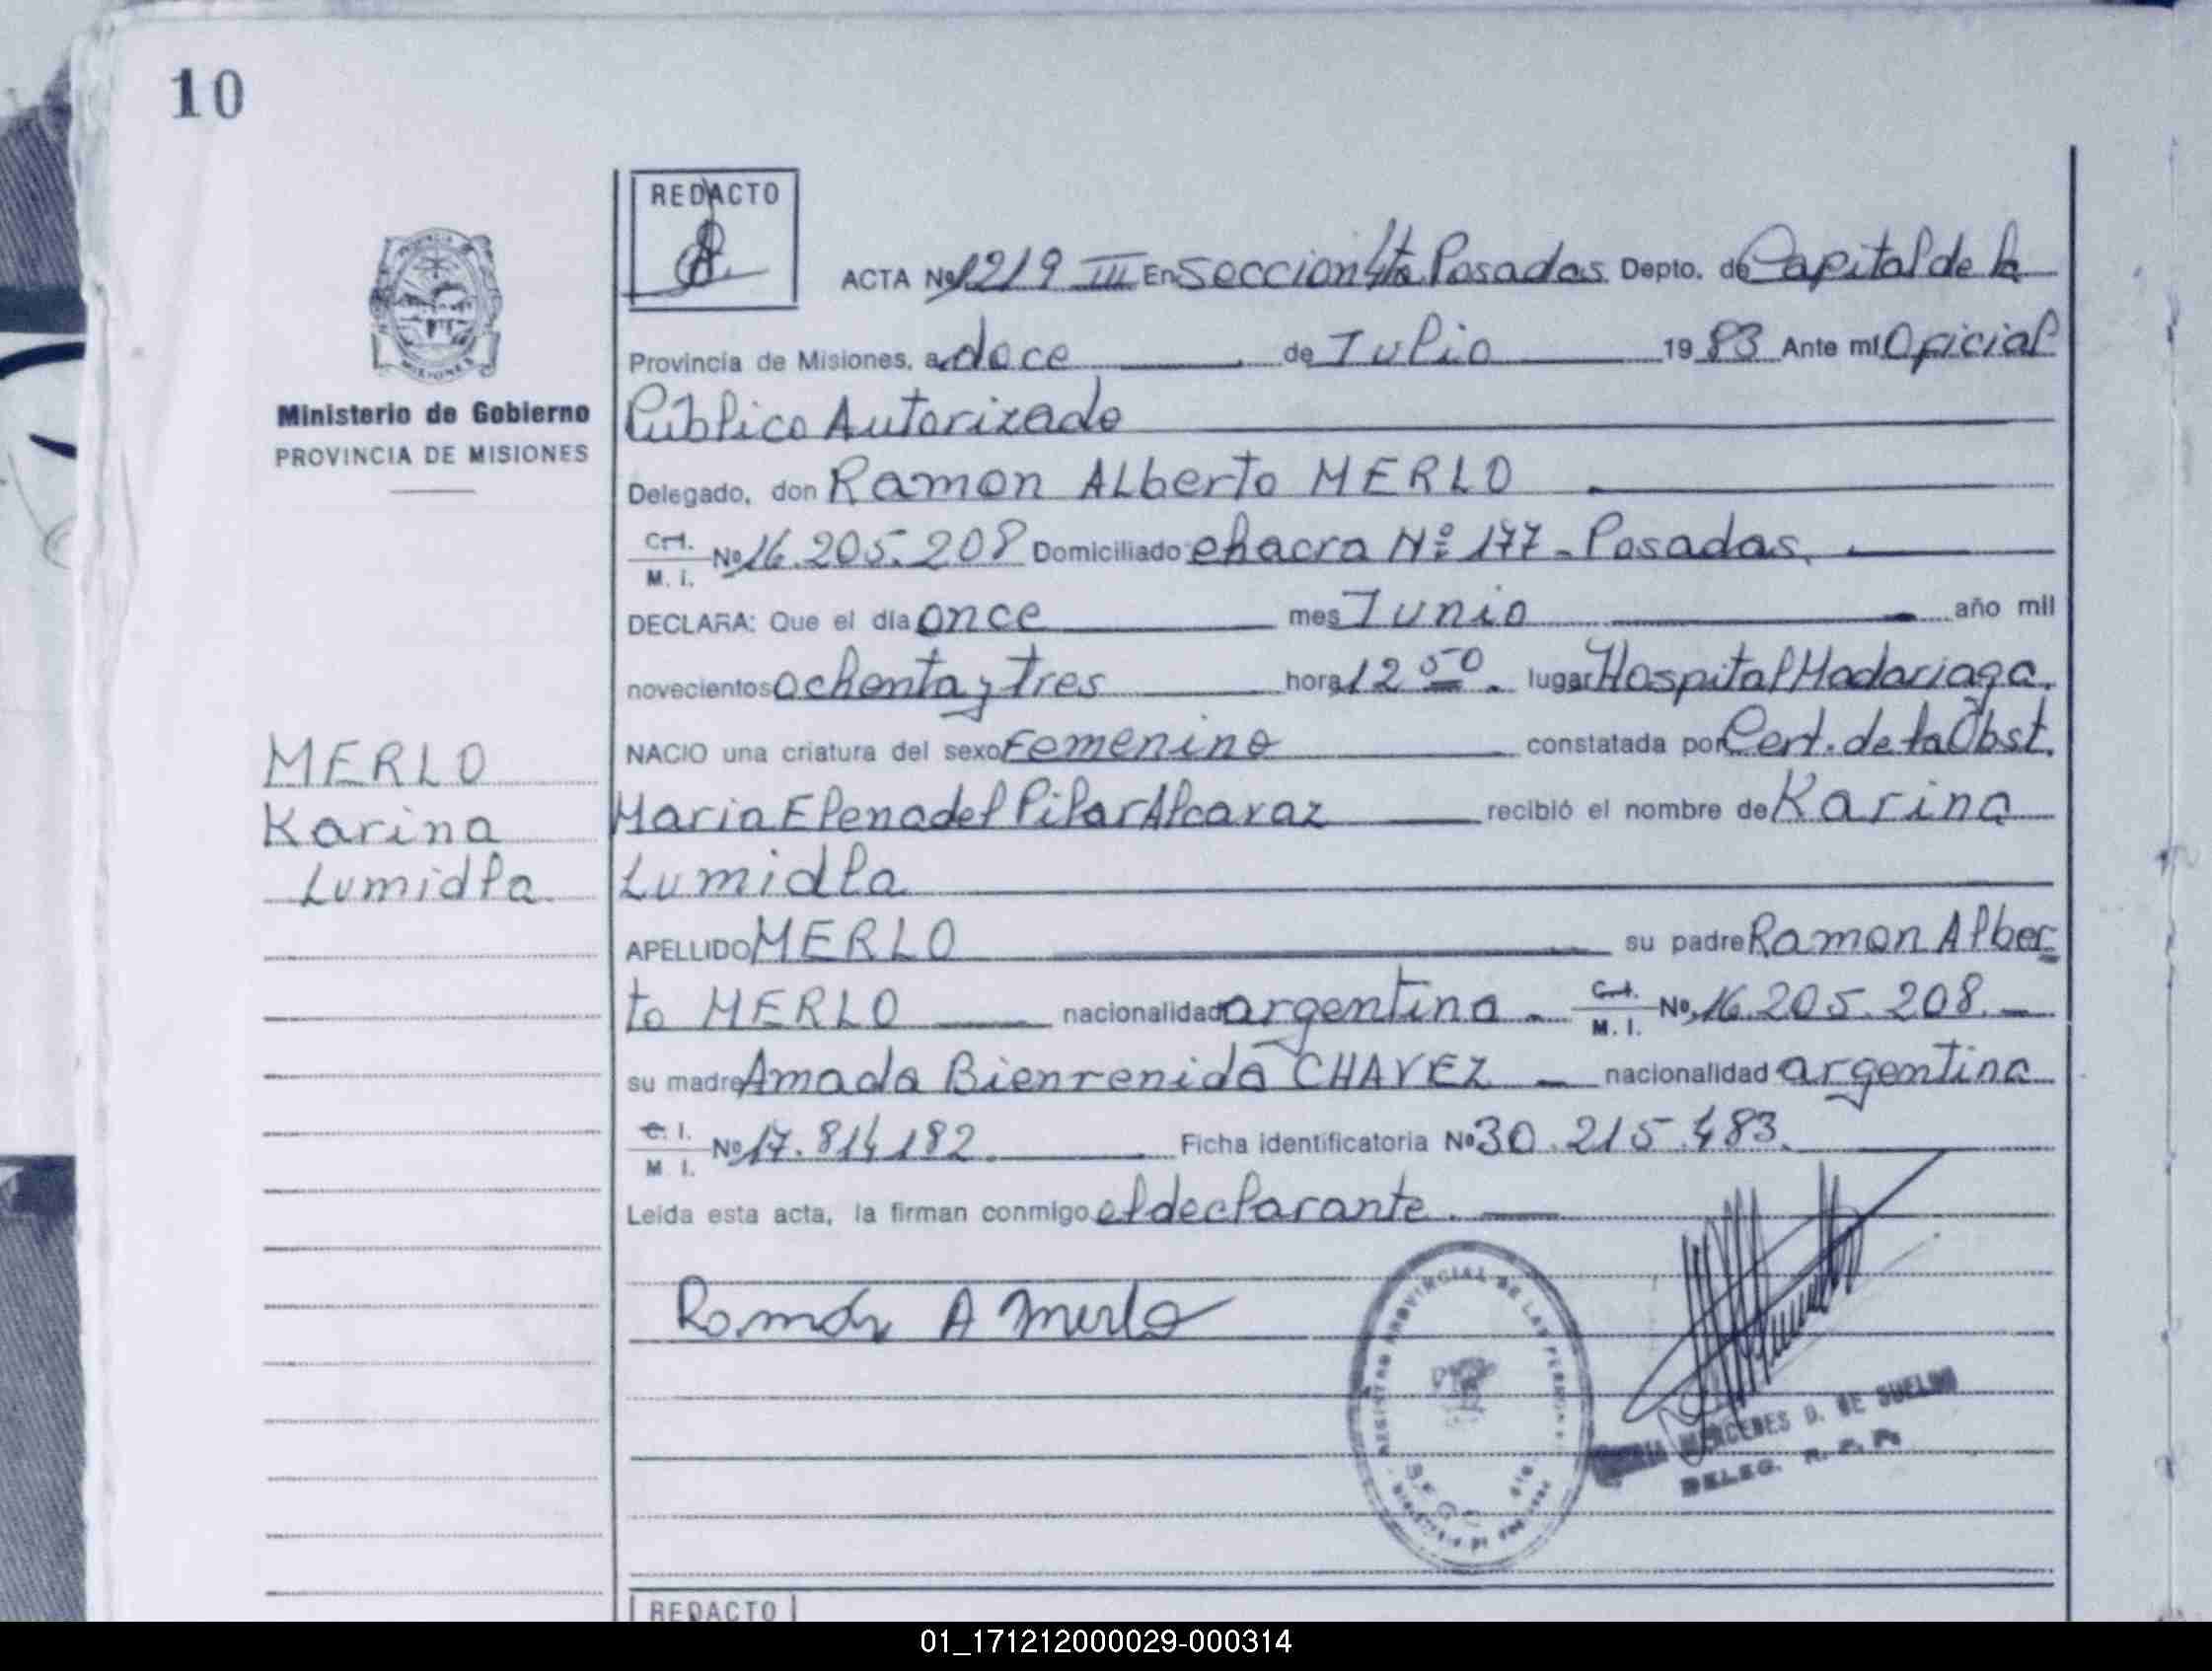 10
REDACTO
ACTA Nº 1219 III En Seccion 4ta Posadas Depto. de Capital de la
Provincia de Misiones, a doce de Julio 1983 Ante mi Oficial
Público Autorizado
Ministerio de Gobierno
PROVINCIA DE MISIONES
Delegado, don Ramon Alberto MERLO
C. I.
M. I. Nº 16.205.208 Domiciliado chacra Nº 177 - Posadas.
DECLARA: Que el día once mes Junio año mil
novecientos ochenta y tres hora 12 50. lugar Hospital Madariaga.
NACIO una criatura del sexo Femenino constatada por Cert. de la Obst.
MERLO
Karina
Lumidla
Maria Elena del Pilar Alcaraz recibió el nombre de Karina
Lumidla
APELLIDO MERLO su padre Ramon Alber
to MERLO nacionalidad argentina - C. I.
M. I. Nº 16.205.208.-
su madre Amada Bienvenida CHAVEZ - nacionalidad argentina
C. I.
M I. Nº 17.814.182. Ficha identificatoria Nº 30.215.483.
Leida esta acta, la firman conmigo el declarante.
Ramón A Merlo
REGISTRO PROVINCIAL DE LAS PERSONAS
MERCEDES D. DE
DELEG. R. P. P.
REDACTO
01_171212000029-000314